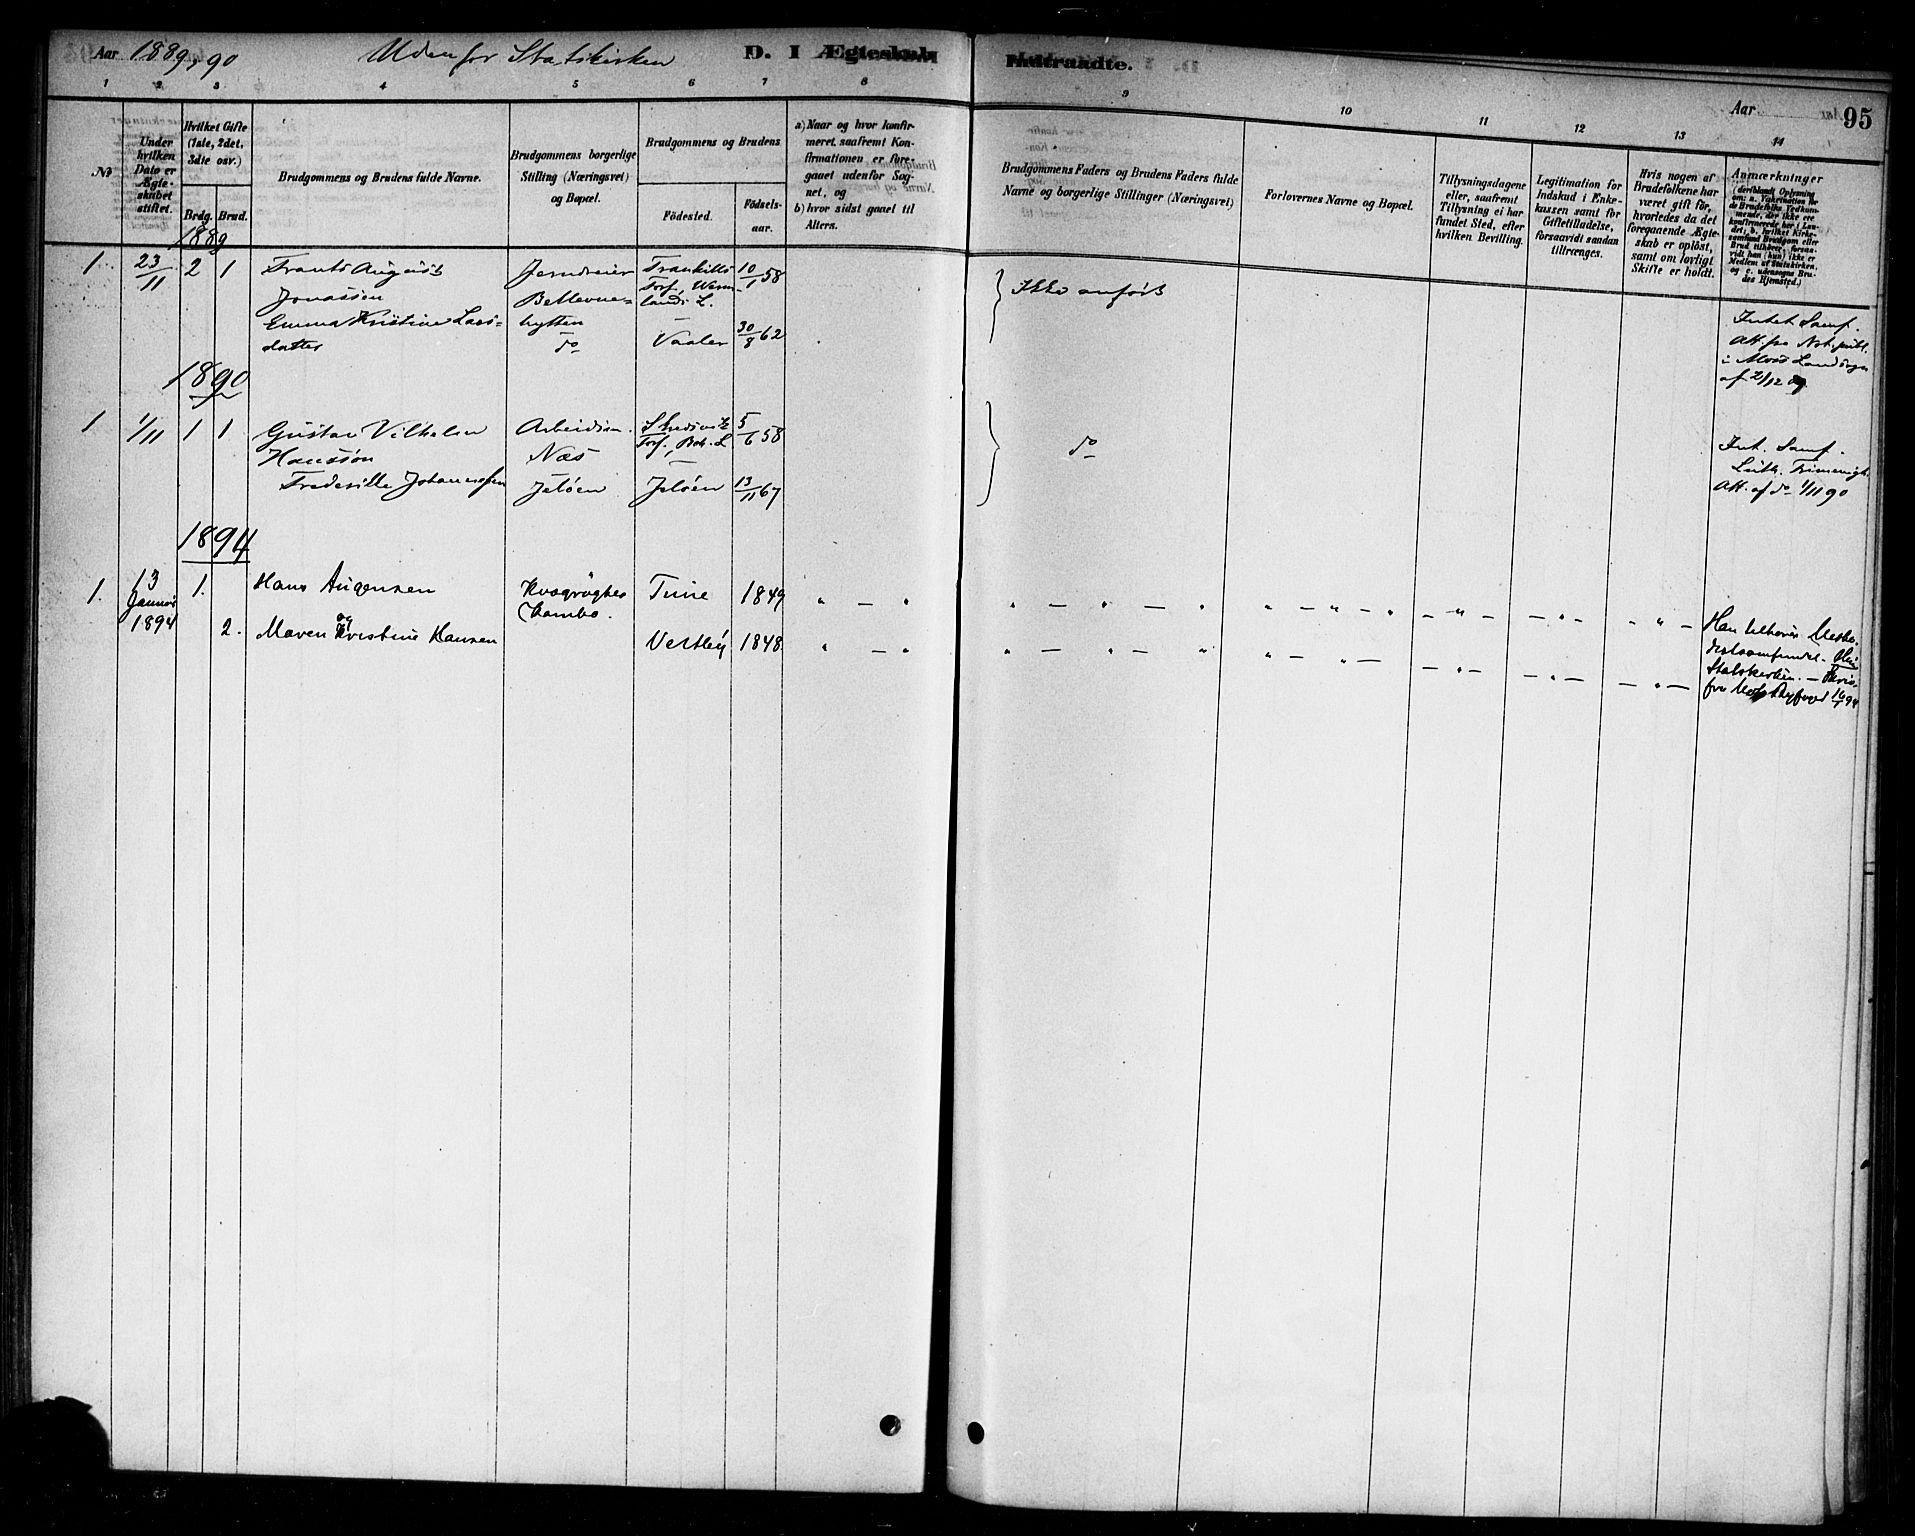 Aar 1889, 90 Udenfor Statskirken D. I Ægteskab Indtraadte. Aar 95
1 2 3 4 5 6 7 8 9 10 11 12 13 14
No
Under hvilken Dato er Ægteskabet stiftet.
Hvilket Gifte (1ste, 2det, 3die osv.)
Brdg. Brud.
Brudgommens og Brudens fulde Navne.
Brudgommens borgerlige Stilling (Næringsvei) og Bopæl.
Brudgommens og Brudens
Födested.
Födsels-aar.
a) Naar og hvor konfirmeret, saafremt Konfirmationen er foregaaet udenfor Sognet, og
b) hvor sidst gaaet til Alters.
Brudgommens Faders og Brudens Faders fulde Navne og borgerlige Stillinger (Næringsvei)
Forlovernes Navne og Bopæl.
Tillysningsdagene eller, saafremt Tillysning ei har fundet Sted, efter hvilken Bevilling.
Legitimation for Indskud i Enkekassen samt for Giftetilladelse, forsaavidt saadan tiltrænges.
Hvis nogen af Brudefolkene har været gift för, hvorledes da det foregaaende Ægteskab er oplöst, samt om lovligt Skifte er holdt.
Anmærkninger
1889
1 23/11 2 1 Frants August Jerndreier 10/1 58 Ikke anført
Jonassøn Bellevue- lands L.
Emma Kristine Lars- hytten
datter do Vaaler 30/8 62
Intet Samf.
Att. fra Not. publ.
i Moss Landsogn
af 2/12 89
1890
1 1/11 1 1 Gustav Vilhelm Arbeidsm. 5/6 58 do
Hanssøn Næs
Jeløen Jeløen 13/11 67
Int. Samf.
Luth. Frimenigh.
Att. af do 1/11 90
1894
1. 13 Januar 1894 1. Hans Tune 1849
og Kambo.
2. Maren Kristine Hansen Vestby 1848
Han tilhører Metho-
distsamfundet. Hun
Statskirken.
fra